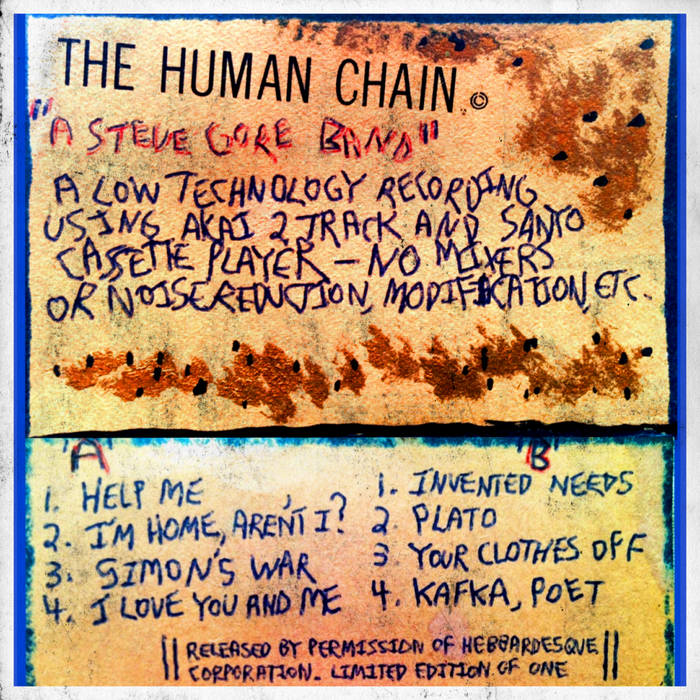 THE HUMAN CHAIN ©
"A STEVE GORE BAND"
A LOW TECHNOLOGY RECORDING
USING AKAI 2 TRACK AND SANYO
CASSETTE PLAYER — NO MIXERS
OR NOISE REDUCTION, MODIFICATION, ETC.
"A"
1. HELP ME
2. I'M HOME, AREN'T I?
3. SIMON'S WAR
4. I LOVE YOU AND ME
"B"
1. INVENTED NEEDS
2. PLATO
3 YOUR CLOTHES OFF
4. KAFKA, POET
RELEASED BY PERMISSION OF HEBBARDESQUE
CORPORATION. LIMITED EDITION OF ONE